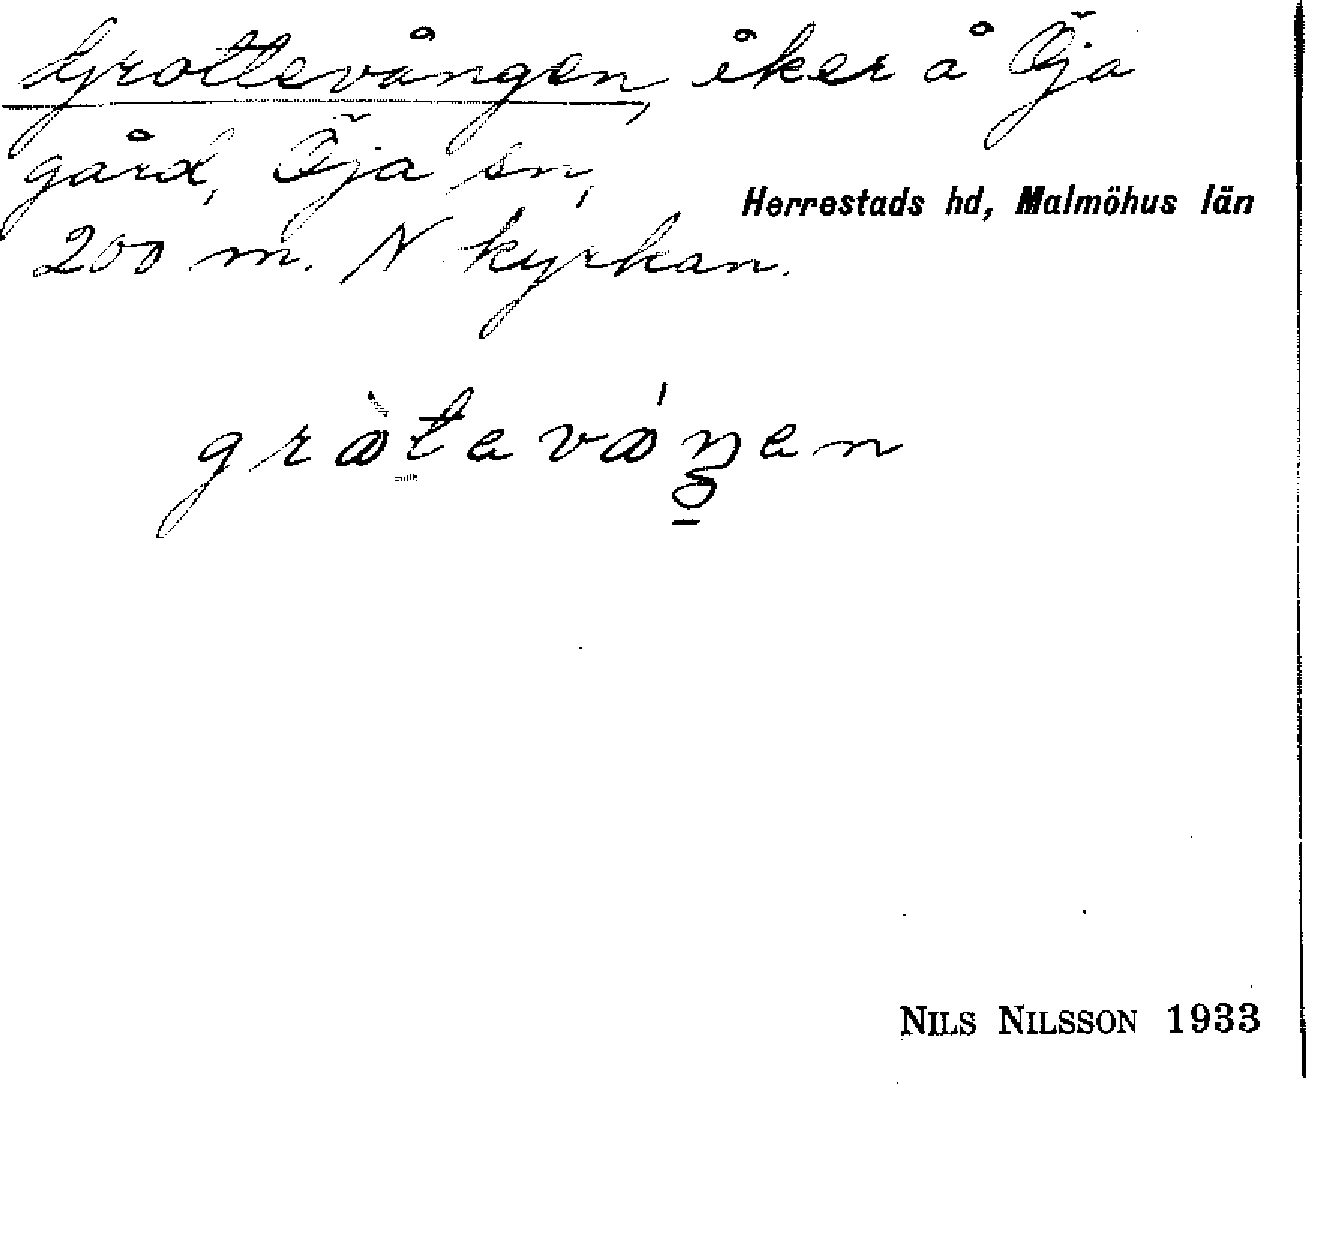 Grottevången, åker å Öja
gård, Öja sn,
Herrestads hd, Malmöhus län
200 m. N kyrkan.
NILS NILSSON 1933